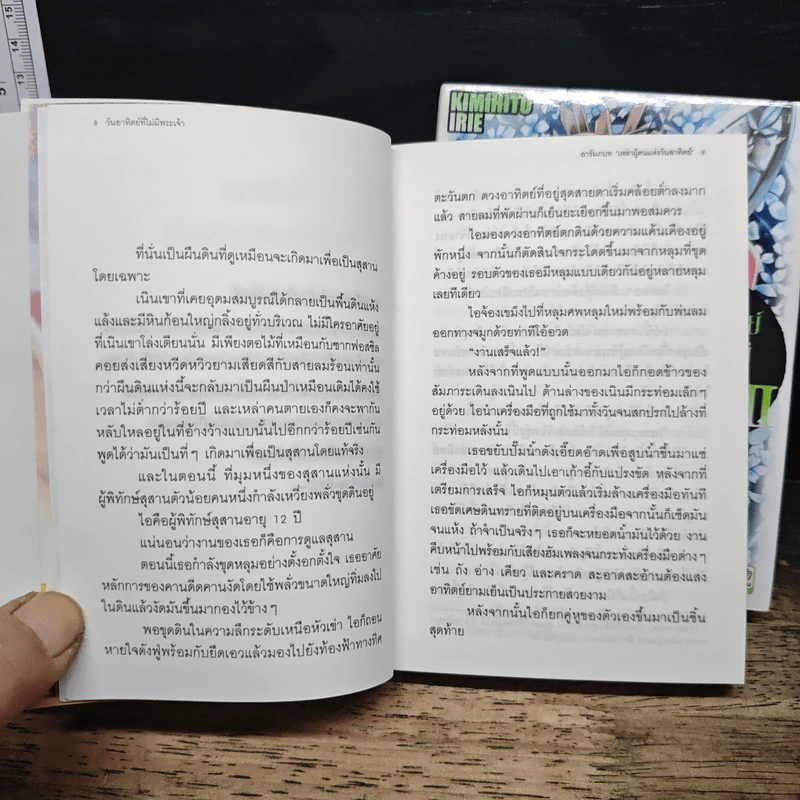 15
14
13
5
KIMIHITO
IRIE
8 วันอาทิตย์ที่ไม่มีพระเจ้า
ที่นั่นเป็นผืนดินที่ดูเหมือนจะเกิดมาเพื่อเป็นสุสาน
โดยเฉพาะ
เนินเขาที่เคยอุดมสมบูรณ์ได้กลายเป็นพื้นดินแห้ง
แล้งและมีหินก้อนใหญ่กลิ้งอยู่ทั่วบริเวณ ไม่มีใครอาศัยอยู่
ที่เนินเขาโล่งเตียนนั่น มีเพียงตอไม้ที่เหมือนกับซากฟอสซิล
คอยส่งเสียงหวีดหวิวยามเสียดสีกับสายลมร้อนเท่านั้น
กว่าผืนดินแห่งนี้จะกลับมาเป็นผืนป่าเหมือนเดิมได้คงใช้
เวลาไม่ต่ำกว่าร้อยปี และเหล่าคนตายเองก็คงจะพากัน
หลับใหลอยู่ในที่อ้างว้างแบบนั้นไปอีกกว่าร้อยปีเช่นกัน
พูดได้ว่ามันเป็นที่ๆ เกิดมาเพื่อเป็นสุสานโดยแท้จริง
และในตอนนี้ ที่มุมหนึ่งของสุสานแห่งนั้น มี
ผู้พิทักษ์สุสานตัวน้อยคนหนึ่งกำลังเหวี่ยงพลั่วขุดดินอยู่
ไอคือผู้พิทักษ์สุสานอายุ 12 ปี
แน่นอนว่างานของเธอก็คือการดูแลสุสาน
ตอนนี้เธอกำลังขุดหลุมอย่างตั้งอกตั้งใจ เธออาศัย
หลักการของคานดีดคานงัดโดยใช้พลั่วขนาดใหญ่ทิ่มลงไป
ในดินแล้วงัดมันขึ้นมากองไว้ข้างๆ
พอขุดดินในความลึกระดับเหนือหัวเข่า ไอก็ถอน
หายใจดังฟู่พร้อมกับยืดเอวแล้วมองไปยังท้องฟ้าทางทิศ
อารัมภบท 'เหล่าผู้คนแห่งวันอาทิตย์' 9
ตะวันตก ดวงอาทิตย์ที่อยู่สุดสายตาเริ่มคล้อยต่ำลงมาก
แล้ว สายลมที่พัดผ่านก็เย็นยะเยือกขึ้นมาพอสมควร
ไอมองดวงอาทิตย์ตกดินด้วยความแค้นเคืองอยู่
พักหนึ่ง จากนั้นก็ตัดสินใจกระโดดขึ้นมาจากหลุมที่ขุด
ค้างอยู่ รอบตัวของเธอมีหลุมแบบเดียวกันอยู่หลายหลุม
เลยทีเดียว
ไอจ้องเขม็งไปที่หลุมศพหลุมใหม่พร้อมกับพ่นลม
ออกทางจมูกด้วยท่าทีโอ้อวด
"งานเสร็จแล้ว!"
หลังจากที่พูดแบบนั้นออกมาไอก็กอดข้าวของ
สัมภาระเดินลงเนินไป ด้านล่างของเนินมีกระท่อมเล็กๆ
อยู่ด้วย ไอนำเครื่องมือที่ถูกใช้มาทั้งวันจนสกปรกไปล้างที่
กระท่อมหลังนั้น
เธอขยับปั๊มน้ำดังเอี๊ยดอ๊าดเพื่อสูบน้ำขึ้นมาแช่
เครื่องมือไว้ แล้วเดินไปเอาเก้าอี้กับแปรงขัด หลังจากที่
เตรียมการเสร็จ ไอก็หมุนตัวแล้วเริ่มล้างเครื่องมือทันที
เธอขัดเศษดินทรายที่ติดอยู่บนเครื่องมือจากนั้นก็เช็ดมัน
จนแห้ง ถ้าจำเป็นจริงๆ เธอก็จะหยอดน้ำมันไว้ด้วย งาน
คืบหน้าไปพร้อมกับเสียงฮัมเพลงจนกระทั่งเครื่องมือต่างๆ
เช่น ถัง อ่าง เคียว และคราด สะอาดสะอ้านต้องแสง
อาทิตย์ยามเย็นเป็นประกายสวยงาม
หลังจากนั้นไอก็ยกคู่หูของตัวเองขึ้นมาเป็นชิ้น
สุดท้าย